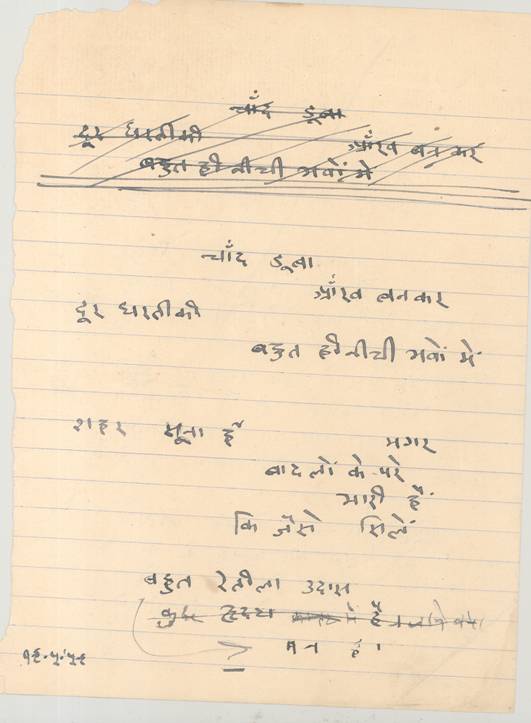 चाँद डूबा
दूर धरती की आँख बन कर
बहुत ही नीची भवों में
चाँद डूबा
आँख बनकर
दूर धरती की
बहुत ही नीची भवों में
शहर सूना है
मगर
बादलों के परे
भारी हैं
कि जैसे सिलें
बहुत रेतीला उदास
कुछ हृदय में है
मन है।
१९.५.५९